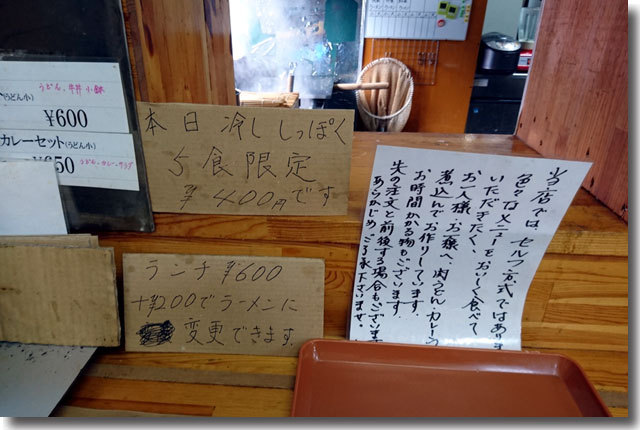 うどん、牛丼小鉢
(うどん小)
¥600
カレーセット(うどん小)
¥650
うどん、カレー、サラダ
本日 冷し しっぽく
5食限定
¥400円です
ランチ ¥600
+¥200でラーメンに
変更できます
当店では、セルフ方式ではありま
色々なメニューをおいしく食べて、
いただきたく、
お一人様、お一人様へ、肉うどん・カレーう
煮込んでお作りしています。
お時間かかる物もございます。
先の注文と前後する場合もございます
あらかじめ、ご了承下さいませ。